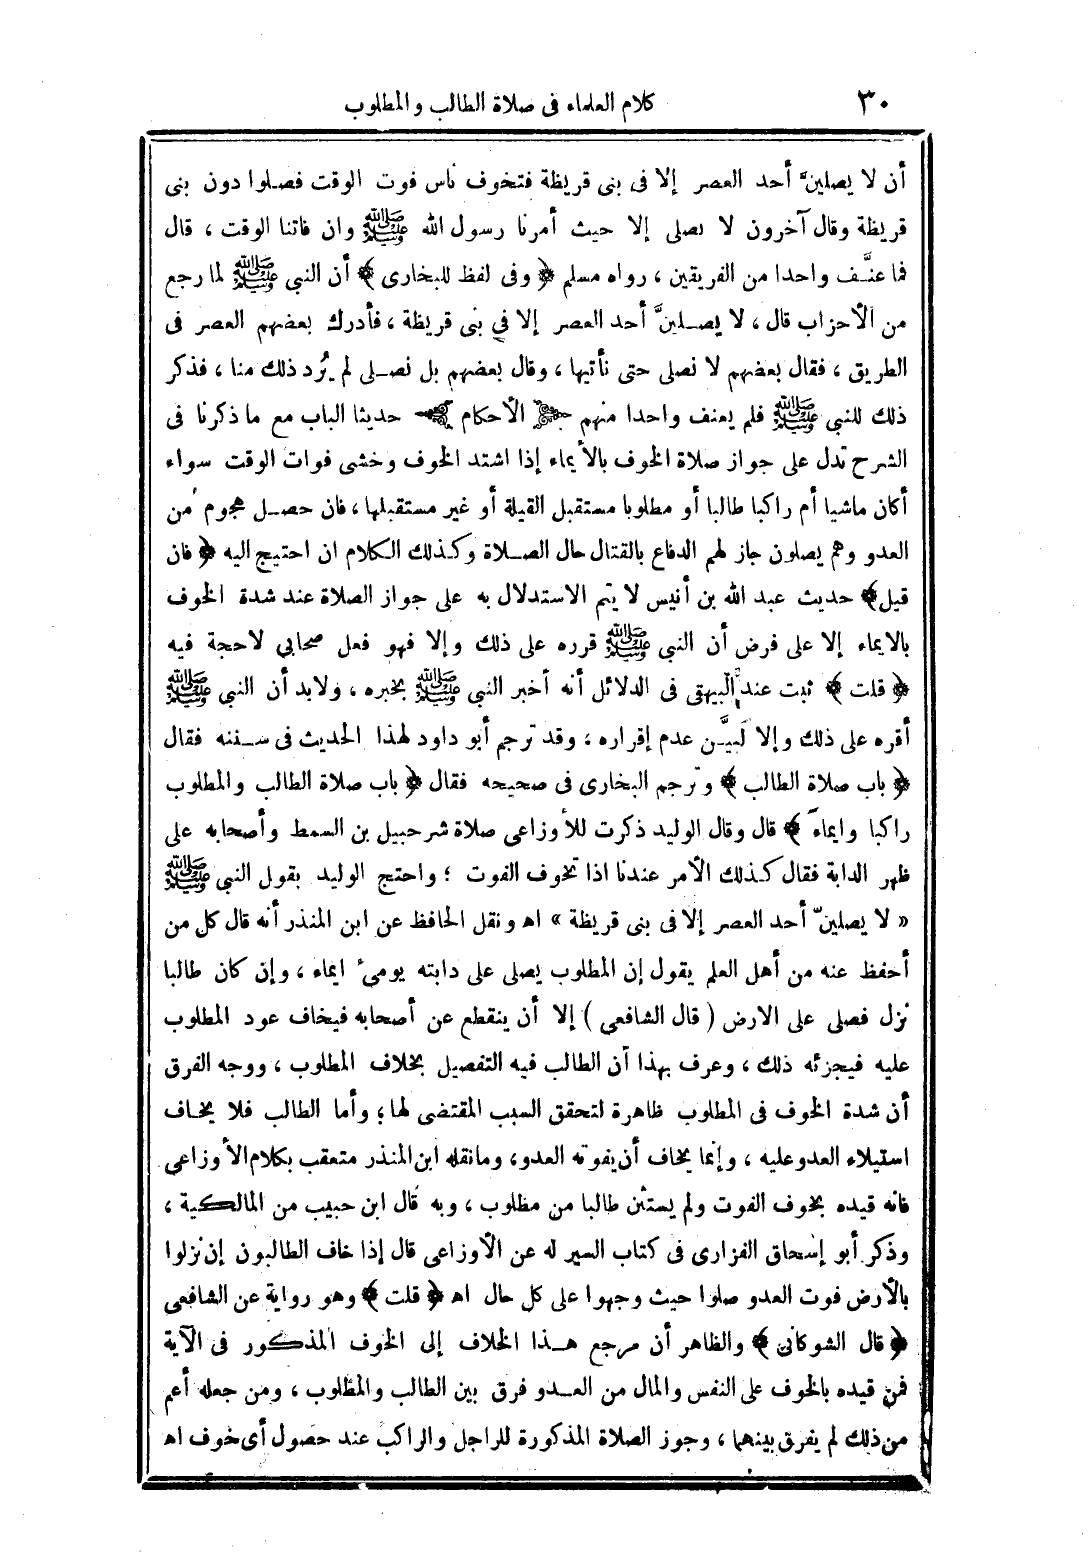 ٣٠ كلام العلماء فى صلاة الطالب والمطلوب
أن لا يصلينَّ أحد العصر إلا فى بنى قريظة فتخوف ناس فوت الوقت فصلوا دون بنى
قريظة وقال آخرون لا نصلى إلا حيث أمرنا رسول الله ﷺ وان فاتنا الوقت ، قال
فما عنَّف واحدا من الفريقين ، رواه مسلم ﴿ وفى لفظ للبخارى ﴾ أن النبى ﷺ لما رجع
من الأحزاب قال ، لا يصلينَّ أحد العصر إلا في بنى قريظة ، فأدرك بعضهم العصر فى
الطريق ، فقال بعضهم لا نصلى حتى نأتيها ، وقال بعضهم بل نصلى لم يُرد ذلك منا ، فذكر
ذلك للنبى ﷺ فلم يعنف واحدا منهم الأحكام حديثا الباب مع ما ذكرنا فى
الشرح تدل على جواز صلاة الخوف بالأيماء إذا اشتد الخوف وخشى فوات الوقت سواء
أكان ماشيا أم راكبا طالبا أو مطلوبا مستقبل القبلة أو غير مستقبلها ، فان حصل هجوم من
العدو وهم يصلون جاز لهم الدفاع بالقتال حال الصلاة وكذلك الكلام ان احتيج اليه ﴿ فان
قيل ﴾ حديث عبد الله بن أنيس لا يتم الاستدلال به على جواز الصلاة عند شدة الخوف
بالايماء إلا على فرض أن النبى ﷺ قرره على ذلك وإلا فهو فعل صحابي لاحجة فيه
﴿ قلت ﴾ ثبت عند البيهقى فى الدلائل أنه أخبر النبي ﷺ بخبره ، ولابد أن النبى ﷺ
أقره على ذلك وإلا لبيَّن عدم إقراره ، وقد ترجم أبو داود لهذا الحديث فى سننه فقال
﴿ باب صلاة الطالب ﴾ وترجم البخارى فى صحيحه فقال ﴿ باب صلاة الطالب والمطلوب
راكبا وايماء ﴾ قال وقال الوليد ذكرت للأوزاعى صلاة شرحبيل بن السمط وأصحابه على
ظهر الدابة فقال كذلك الأمر عندنا اذا تخوف الفوت ؛ واحتج الوليد بقول النبى ﷺ
« لا يصلينّ أحد العصر إلا فى بنى قريظة » اه ونقل الحافظ عن ابن المنذر أنه قال كل من
أحفظ عنه من أهل العلم يقول إن المطلوب يصلى على دابته يومىء ايماء ، وإن كان طالبا
نزل فصلى على الارض ( قال الشافعى ) إلا أن ينقطع عن أصحابه فيخاف عود المطلوب
عليه فيجزئه ذلك ، وعرف بهذا أن الطالب فيه التفصيل بخلاف المطلوب ، ووجه الفرق
أن شدة الخوف فى المطلوب ظاهرة لتحقق السبب المقتضى لها ؛ وأما الطالب فلا يخاف
استيلاء العدو عليه ، وإنما يخاف أن يفوته العدو ، وما نقله ابن المنذر متعقب بكلام الأوزاعى
فانه قيده بخوف الفوت ولم يستثن طالبا من مطلوب ، وبه قال ابن حبيب من المالكية ،
وذكر أبو إسحاق الفزارى فى كتاب السير له عن الأوزاعى قال إذا خاف الطالبون إن نزلوا
بالأرض فوت العدو صلوا حيث وجهوا على كل حال اه ﴿ قلت ﴾ وهو رواية عن الشافعى
﴿ قال الشوكانى ﴾ والظاهر أن مرجع هذا الخلاف إلى الخوف المذكور فى الآية
فمن قيده بالخوف على النفس والمال من العدو فرق بين الطالب والمطلوب ، ومن جعله أعم
من ذلك لم يفرق بينهما ، وجوز الصلاة المذكورة للراجل والراكب عند حصول أى خوف اه